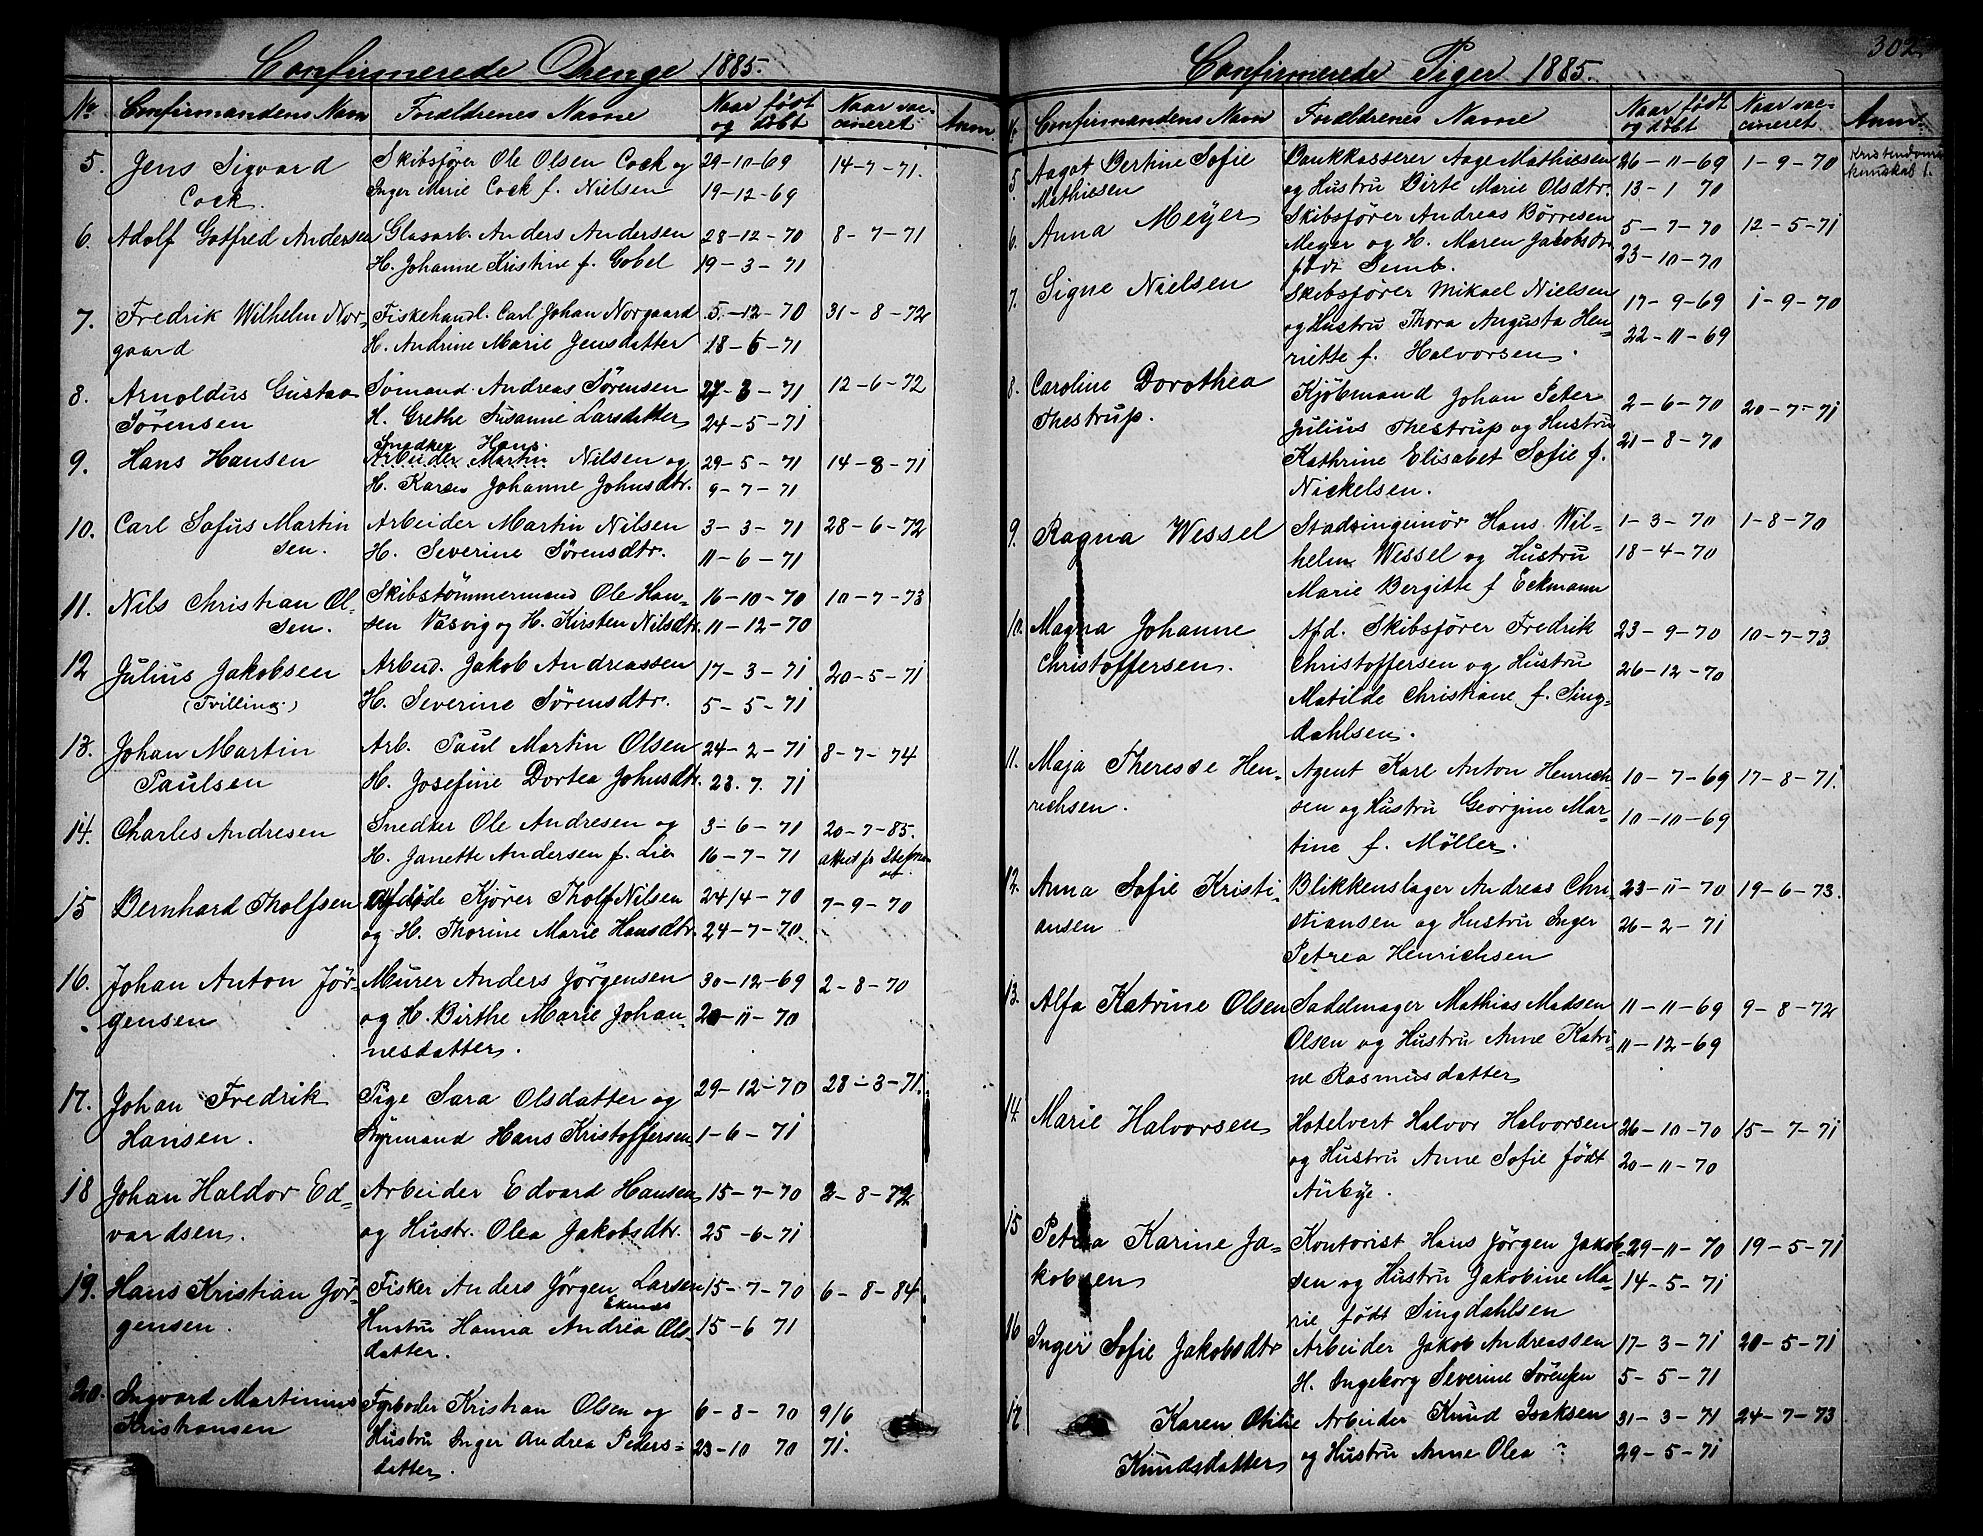 302
Confirmerede Drenge 1885.
No Confirmandens Navn Forældrenes Navne Naar født og døbt Naar vaccineret Anm
5. Jens Sigvard Skibsfører Ole Olsen Cock og 29-10-69 14-7-71.
Cock. Inger Marie Cock f. Nielsen 19-12-69
6. Adolf Gotfred Andersen Glasarb. Anders Andersen 28-12-70 8-7-71
H. Johanne Kristine f. Gobel 19-3-71
7. Fredrik Wilhelm Nor- Fiskehandl. Carl Johan Norgaard 5.-12-70 31-8-72
gaard H. Andrine Marie Jensdatter 18-6-71
8. Arnoldus Gustav Sømand Andreas Sørensen 27-3-71 12-6-72
Sørensen H. Grethe Susanne Larsdatter 24-5-71
Snedker Hans
9. Hans Hansen Arbeider Martin Nilsen og 29-5-71 14-8-71
H. Karen Johanne Johnsdtr. 9-7-71
10. Carl Sofus Martin Arbeider Martin Nilsen 3-3-71 28-6-72
sen. H. Severine Sørensdtr. 11-6-71
11. Nils Christian Ol- Skibstømmermand Ole Han- 16-10-70 10-7-73
sen. sen Vasvig og H. Kirsten Nilsdtr. 11-12-70
12 Julius Jakobsen Arbeid. Jakob Andreassen 17-3-71 20-5-71
(Tvilling) H. Severine Sørensdtr. 5-5-71
13. Johan Martin Arb. Paul Martin Olsen 24-2-71 8-7-74
Paulsen H. Josefine Dortea Johnsdtr. 23.7.71
14. Charles Andresen Snedker Ole Andresen og 3-6-71 20-7-85.
H. Janette Andersen f. Lie 16-7-71 attest fr
15 Bernhard Tholfsen Afdøde Kjører Tholf Nilsen 24/4-70 7-9-70
og H. Thorine Marie Hansdtr. 24-7-70.
16. Johan Anton Jør- Murer Anders Jørgensen 30-12-69 2-8-70
gensen og H. Birthe Marie Johan- 20-11-70
nesdatter.
17. Johan Fredrik Pige Sara Olsdatter og 29-12-70 28-3-71.
Hansen. Styrmand Hans Kristoffersen 1-6-71
18 Johan Haldor Ed- Arbeider Edvard Hansen 15-7-70 2-8-72
vardsen. og Hustr. Olea Jakobsdtr. 25-6-71
19. Hans Kristian Jør- Fisker Anders Jørgen Larsen 15-7-70 6-8-84
Eknes
gensen. Hustru Hanna Andrea Ols- 15-6 71
datter.
20. Ingvard Martinius Fyrbøder Kristian Olsen og 6-8-70 9/6
Kristiansen Hustru Inger Andrea Peders- 23-10 70 71.
datter.
Confirmerede Piger 1885.
Confirmandens Navn Forældrenes Navne Naar født og døbt Naar vaccineret Anm.
5. Aagot Bertine Sofie Bankkasserer Aage Mathiesen 26-11-69 1-9-70 Kristendoms
Mathiesen og Hustru Birte Marie Olsdtr. 13-1 70 kunskab 1.
6. Anna Meyer Skibsfører Andreas Børresen 5-7-70 12-5-71
Meyer og H. Maren Jakobsdtr. 23-10-70
født Semb.
7. Signe Nielsen Skibsfører Mikael Nielsen 17-9-69 1-9-70
og Hustru Thora Augusta Hen- 22-11-69
riette f. Halvorsen.
8. Caroline Dorothea Kjøbmand Johan Peter 2-6-70 20-7-71
Thestrup. Julius Thestrup og Hustru 21-8-70
Kathrine Elisabet Sofie f.
Nickelsen.
9. Ragna Wessel Stadsingeniør Hans Wil- 1-3-70 1-8-70
helm Wessel og Hustru 18-4-70
Marie Bergitte f Eckmann
10. Magna Johanne Afd. Skibsfører Fredrik 23-9-70 10-7-73
Christoffersen. Christoffersen og Hustru 26-12-70
Matilde Christiane f. Sing-
dahlsen.
11. Maja Therese Hen- Agent Karl Anton Henrich- 10-7-69 17-8-71.
richsen. sen og Hustru Georgine Mar- 10-10-69
tine f. Møller.
12. Anna Sofie Kristi- Blikkenslager Andreas Chri- 23-11-70 19-6-73.
ansen stiansen og Hustru Inger 26-2-71
Petrea Henrichsen
13. Alfa Katrine Olsen Saddelmager Mathias Madsen 11-11-69 9-8-72
Olsen og Hustru Anne Katri- 11-12-69
ne Rasmusdatter
14. Marie Halvorsen Hotelvert Halvor Halvorsen 26-10-70 15-7-71
og Hustru Anne Sofie født 20-11-70
Aubye.
15 Petrea Karine Ja- Kontorist Hans Jørgen Jakob- 29-11-70 19-5-71
kobsen sen og Hustru Jakobine Ma- 14-5-71
rie født Singdahlsen
16 Inger Sofie Jakobsdtr Arbeider Jakob Andreassen 17-3-71 20-5-71
H. Ingeborg Severine Sørensen 5-5-71
17 Karen Otilie Arbeider Knud Isaksen 31-3-71 24-7-73
Knudsdatter og Hustru Anne Olea ? 29-5-71